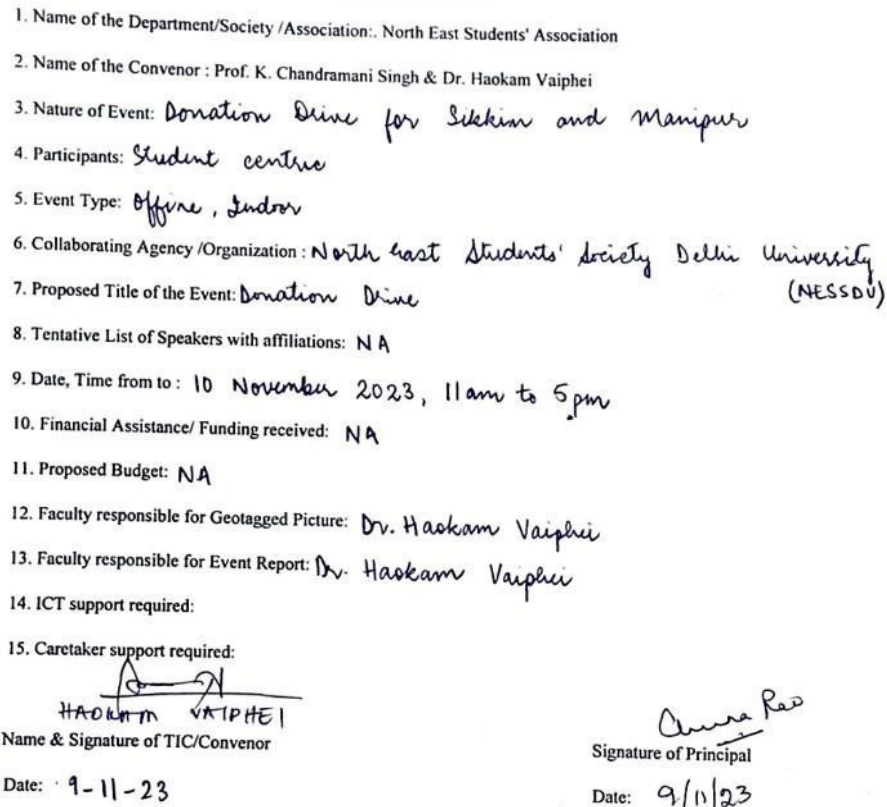 1. Name of the Department/Society /Association:. North East Students' Association
2. Name of the Convenor : Prof. K. Chandramani Singh & Dr. Haokam Vaiphei
3. Nature of Event: Donation Drive for Sikkim and Manipur
4. Participants: Student centric
5. Event Type: Offine, Indoor
6. Collaborating Agency /Organization : North East Students' Society Delhi University
(NESSDU)
7. Proposed Title of the Event: Donation Drive
8. Tentative List of Speakers with affiliations: NA
9. Date, Time from to : 10 November 2023, 11am to 5pm
10. Financial Assistance/ Funding received: NA
11. Proposed Budget: NA
12. Faculty responsible for Geotagged Picture: Dr. Haokam Vaiphei
13. Faculty responsible for Event Report: Dr. Haokam Vaiphei
14. ICT support required:
15. Caretaker support required:
HAOKAM VAIPHEI
Name & Signature of TIC/Convenor
Date: 9-11-23
Rao
Signature of Principal
Date: 9/11/23